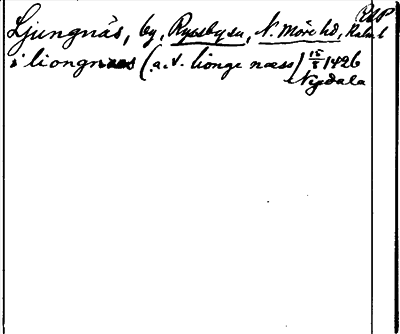 RAP
Ljungnäs, by, Ryssby sn, N. Möre hd, Kalm. l
i liongnæs (a.v. lionge næss) 15/8 1426
Nydala